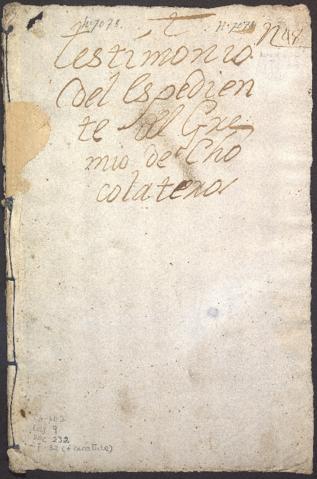 nº 7078. nº 7078 Nº 48
Testimonio
del Espedien
te del Gre
mio de Cho
colateros
Leg 9
Doc 232
f. 32 (+ caratula)